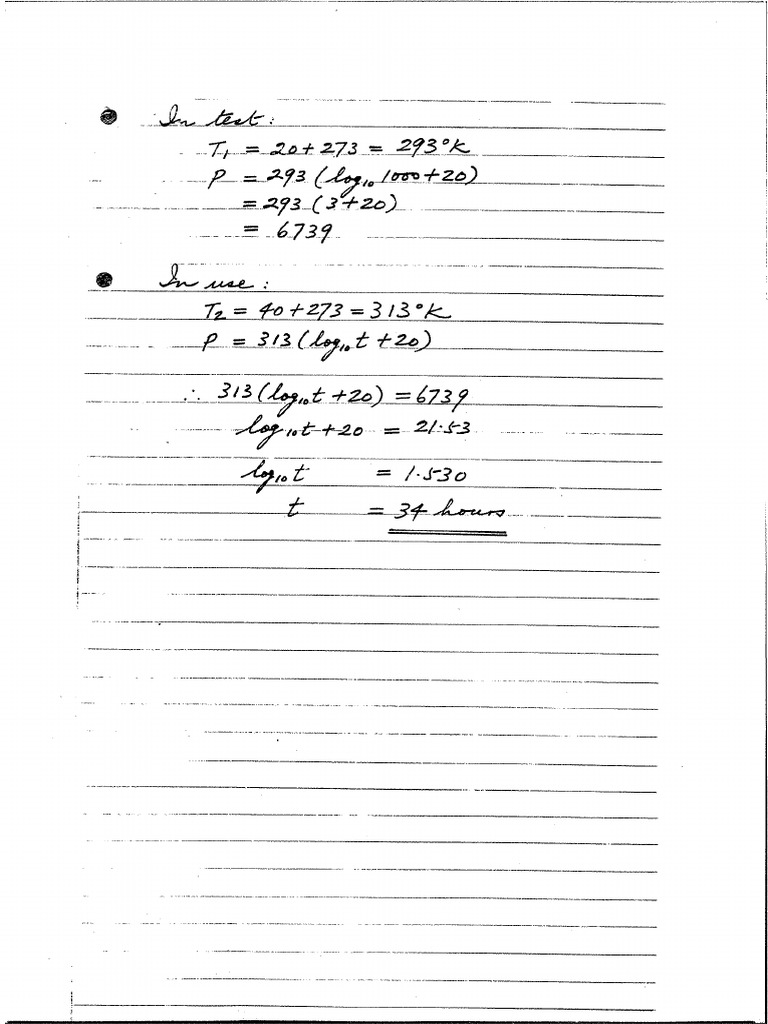 In test:
T₁ = 20+273 = 293°K
P = 293 (log₁₀ 1000+20)
= 293 (3+20)
= 6739
In use:
T₂ = 40+273 = 313°K
P = 313 (log₁₀t +20)
∴ 313(log₁₀t +20) = 6739
log₁₀t+20 = 21.53
log₁₀t = 1.530
t = 34 hours